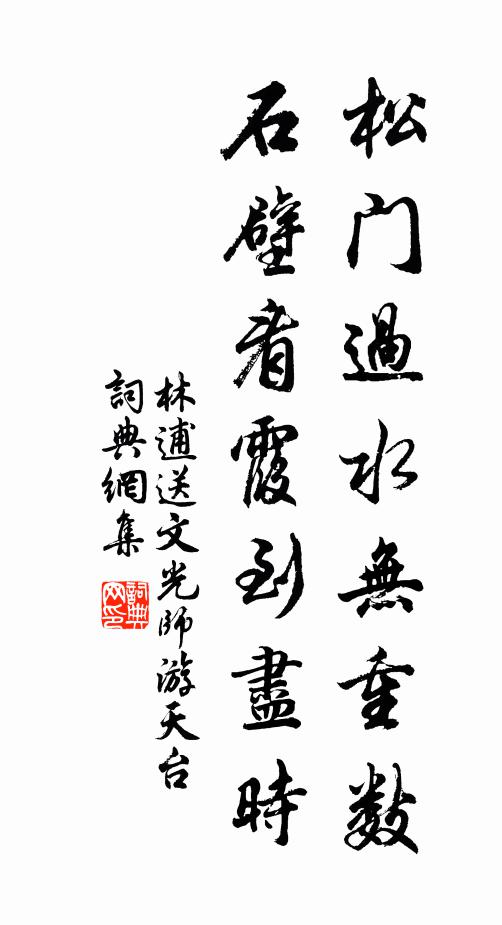 松门過水無重數
石壁看霞到盡時
林逋送文光師游天台
詞典網集
詞典网印